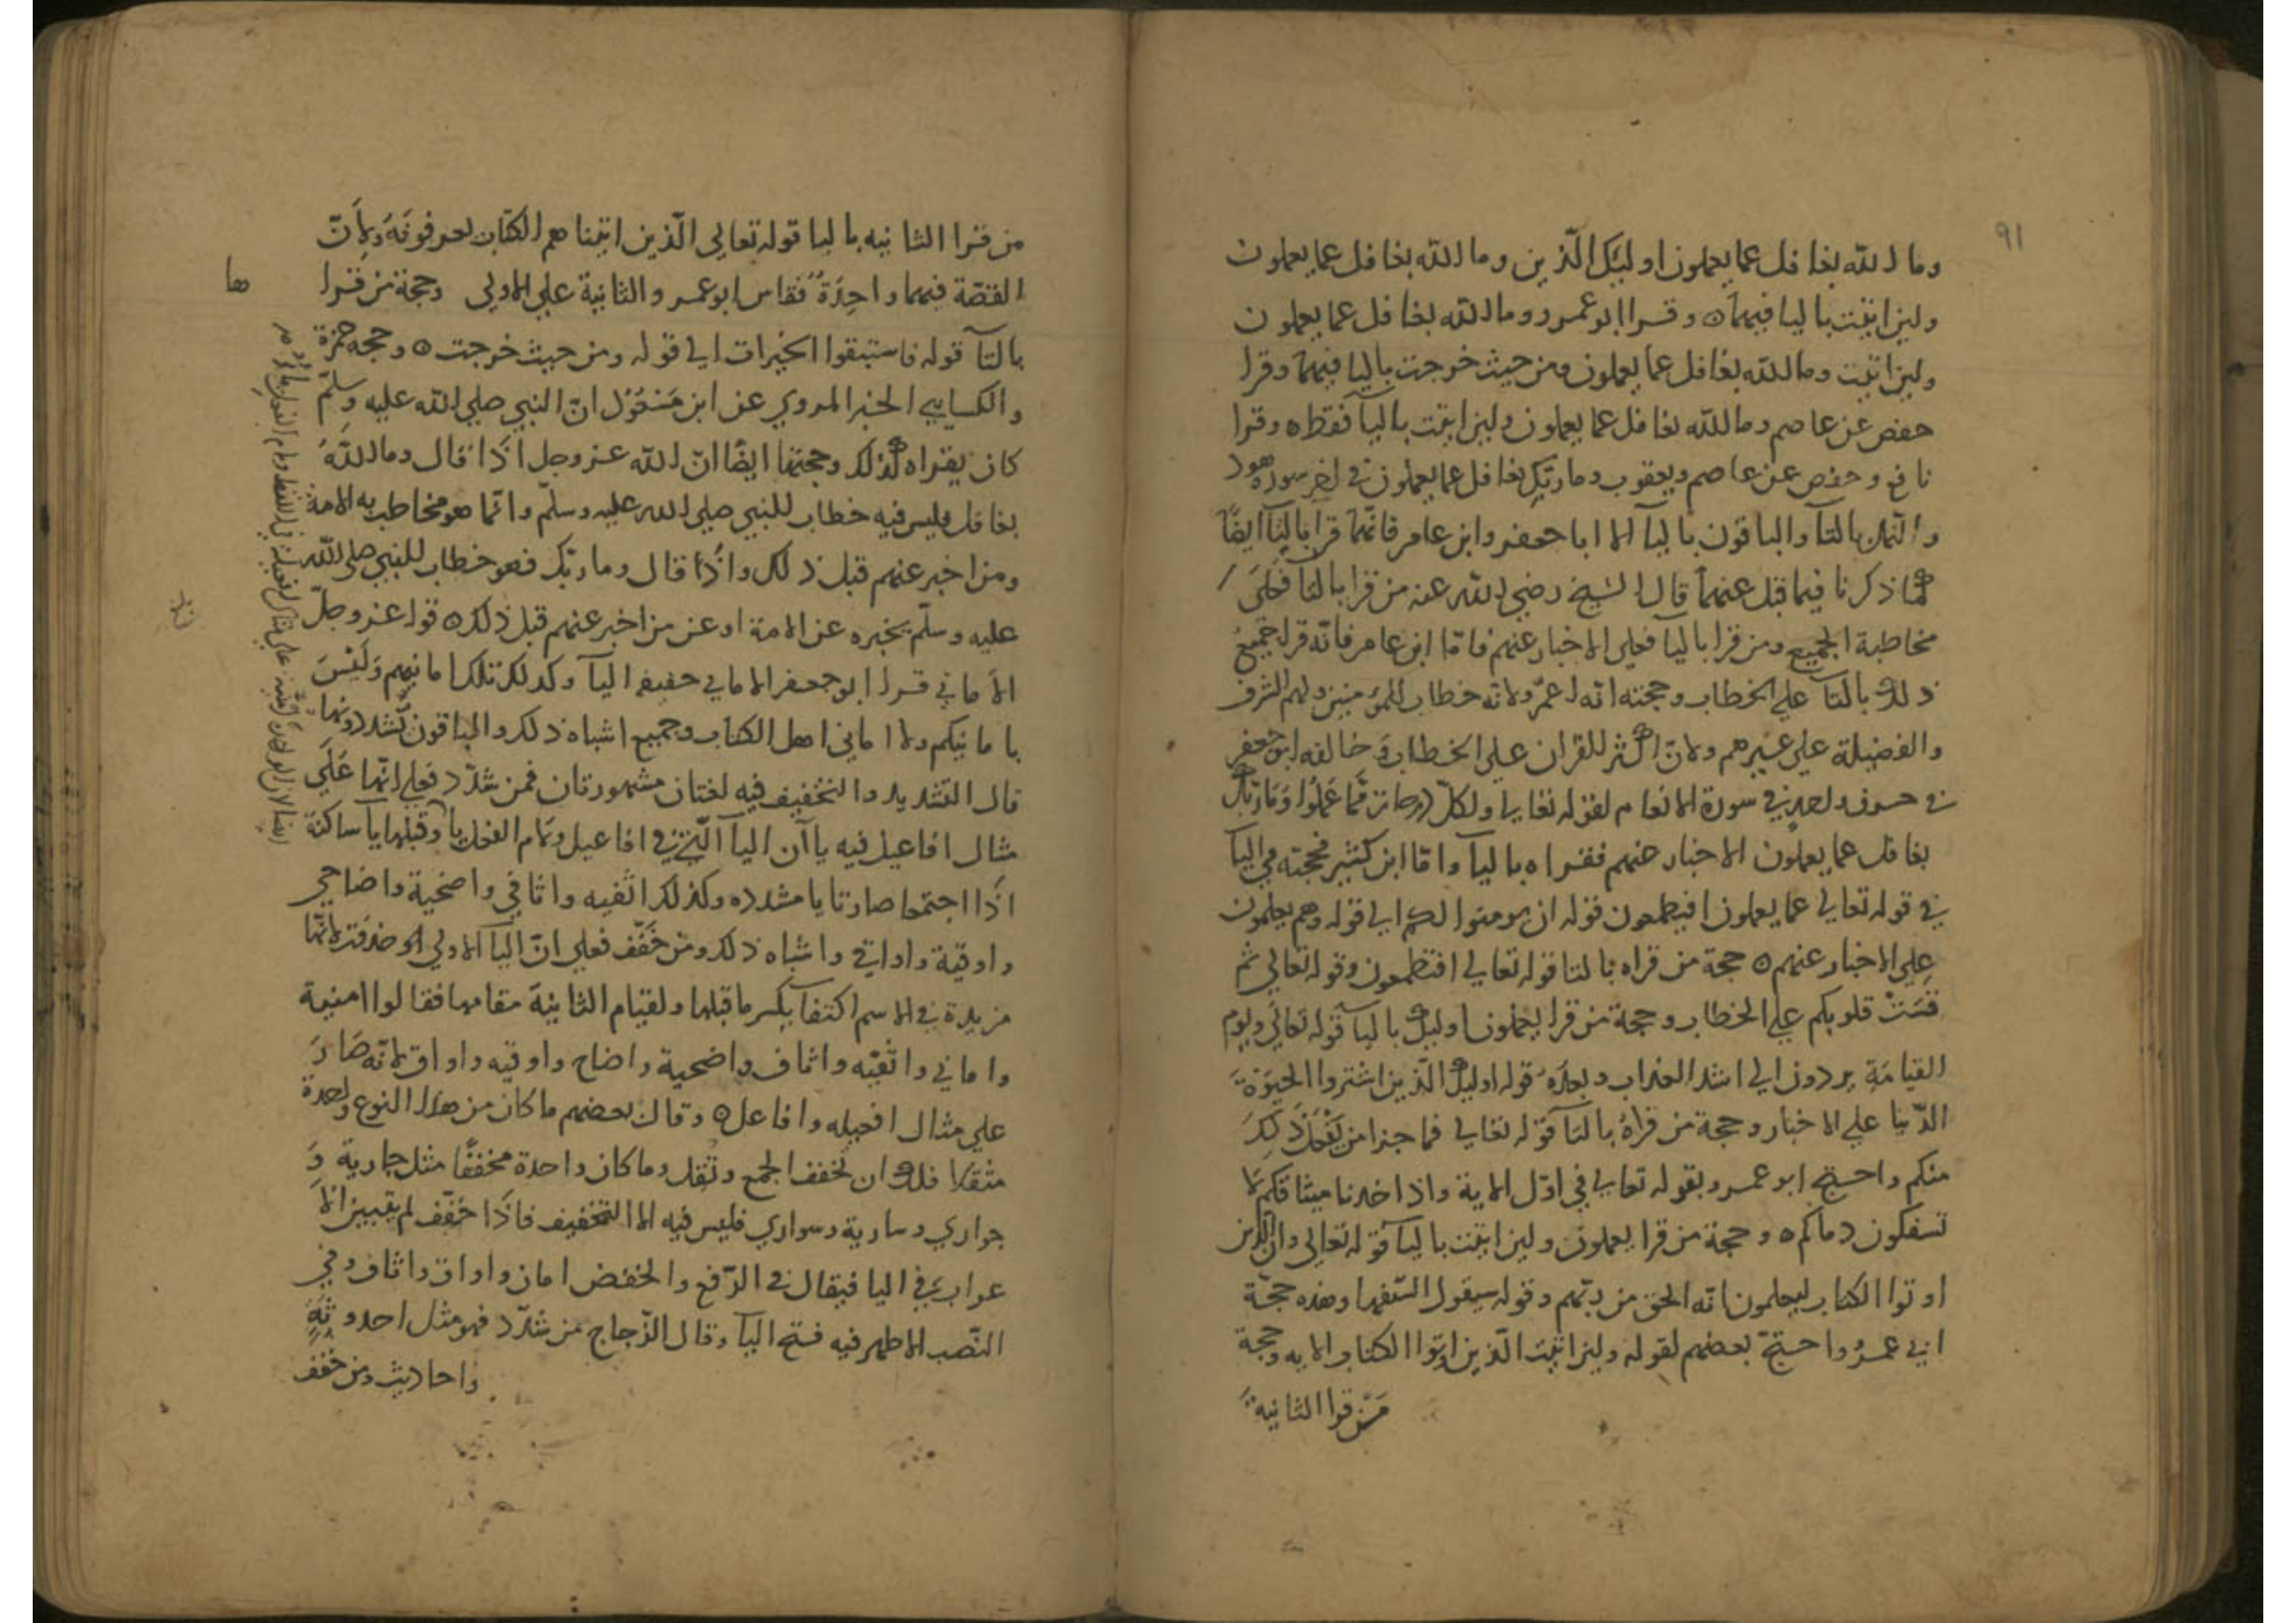 91
وما الله بغافل عما يعملون اوليك الّذين وما الله بغافل عما يعملون
ولين اتيت باليا فيهما ه وقرا ابو عمرو وما الله بغافل عما يعملون
ولين اتيت وما الله بغافل عما يعملون ومن حيث خرجت باليا فيهما وقرا
حفص عن عاصم وما الله بغافل عما يعملون ولين اتيت باليآ فقط ه وقرا
نافع وحفص عن عاصم ويعقوب وما ربّك بغافل عما يعملون في اخر سورة هود
والنمل بالتآ والباقون باليآ الا ابا جعفر وابن عامر فانّهما قرآ بالتآ ايضًا
كما ذكرنا فيما قبل عنهما قال الشيخ رضي الله عنه من قرا بالتآ فعلى
مخاطبة الجميع ومن قرا باليآ فعلي الاخبار عنهم فامّا ابن عامر فانّه قرا جميع
ذلك بالتآ علي الخطاب وحجته انه اعمّ ولانه خطاب للمؤمنين ولهم الشرف
والفضيلة علي غيرهم ولانّ اكثر القران علي الخطاب وخالفه ابو جعفر
في حرف واحد في سورة الانعام لقوله تعالي ولكلّ درجات ممّا عملوا وما ربّك
بغافل عما يعملون الاخبار عنهم فقراه باليآ وامّا ابن كثير فحجته في اليآ
في قوله تعالي عما يعملون افتطمعون قوله ان يومنوا لكم الي قوله وهم يعلمون
علي الاخبار عنهم ه حجة من قراه بالتا قوله تعالي افتطمعون وقوله تعالي ثم
قسَتْ قلوبكم علي الخطاب وحجة من قرا يعملون اوليك باليآ قوله تعالي ويوم
القيامَةِ يردون الي اشد العذاب وبعدَه قوله اوليك الّذين اشتروا الحيوةَ
الدّنيا علي الاخبار وحجة من قراهُ بالتآ قوله تعالي فما جزا من يفعل ذلِكَ
منكم واحتج ابو عمرو بقوله تعالي في اوّل الاية واذ اخذنا ميثاقكم لا
تسفكون دماكم ه وحجة من قرا يعملون ولين اتيت باليآ قوله تعالي وان الذين
اوتوا الكتاب ليعلمون انّه الحق من ربّهم وقوله سيقول السّفها وهذه حجّة
ابي عمرو واحتجّ بعضهم لقوله ولين اتيت الّذين اوتوا الكتاب الايه وحجة
مَن قرا الثانية
من قرا الثانيه باليا قوله تعالي الّذين اتيناهم الكتاب يعرفونَهُ ولانّ
القصّة فيهما واحِدَةٌ فقاس ابو عمرو الثانية علي الاولي وحجة من قرا
بالتآ قوله فاستبقوا الخيرات الي قوله ومن حيث خرجت ه وحجه حمزة
والكسايي الخبر المروي عن ابن مَسعُوْد انّ النبي صلي الله عليه وسلّم
كان يقراه كذلك وحجتهما ايضًا انّ الله عز وجل اذا قال وما اللهُ
بغافل فليس فيه خطاب للنبي صلي الله عليه وسلّم وانّما هو مخاطب به الامة
ومن اخبر عنهم قبل ذلك واذا قال وما ربّك فهو خطاب للنبي صلي الله
عليه وسلّم يخبره عن الامة او عن من اخبر عنهم قبل ذلك ه قوله عز وجلّ
الا ماني قرا ابو جعفر الا ماني خفيفه اليآ وكذلك تلك امانيهم وَلَيْسَ
بامانيكم ولا اماني اهل الكتاب وجميع اشباه ذلك والباقون يشدّدونها
قال التشديد والتخفيف فيه لغتان مشهورتان فمن شدّد فعلي انّها عَلَي
مثال افاعيل فيه ياآن اليآ الّتي في افاعيل ولام الفعل يآ وقبلها يآ ساكنة
اذا اجتمعا صارتا يا مشدده وكذلك اثفيه واثافي واضحية واضاحي
واوقية واواقي واشباه ذلك ومن خَفّف فعلي انّ اليآ الاولي حذفت لانّها
مزيدة في الاسم اكتفآ بكسر ما قبلها ولقيام الثانيَة مقامها فقالوا امنية
واماني واثفيّه واثاف واضحية واضاح واوقيه واواق لانّه صَارَ
علي مثال افعيله وافاعل ه وقال بعضهم ما كان من هذا النوع واحدة
مثقّلا فلك ان تخفف الجمع وتثقل وما كان واحدة مخففًا مثل جارية وَ
جواري وسارية وسواري فليس فيه الا التخفيف فاذا خفّف لم يتبين الا
عراب في اليا فيقال في الرّفع والخفض امان واواق واثاف وفي
النّصب الا ظهر فيه فتح اليآ وقال الزّجاج من شدّد فهو مثل احدوثةٍ
واحاديث ومن خفف
ها